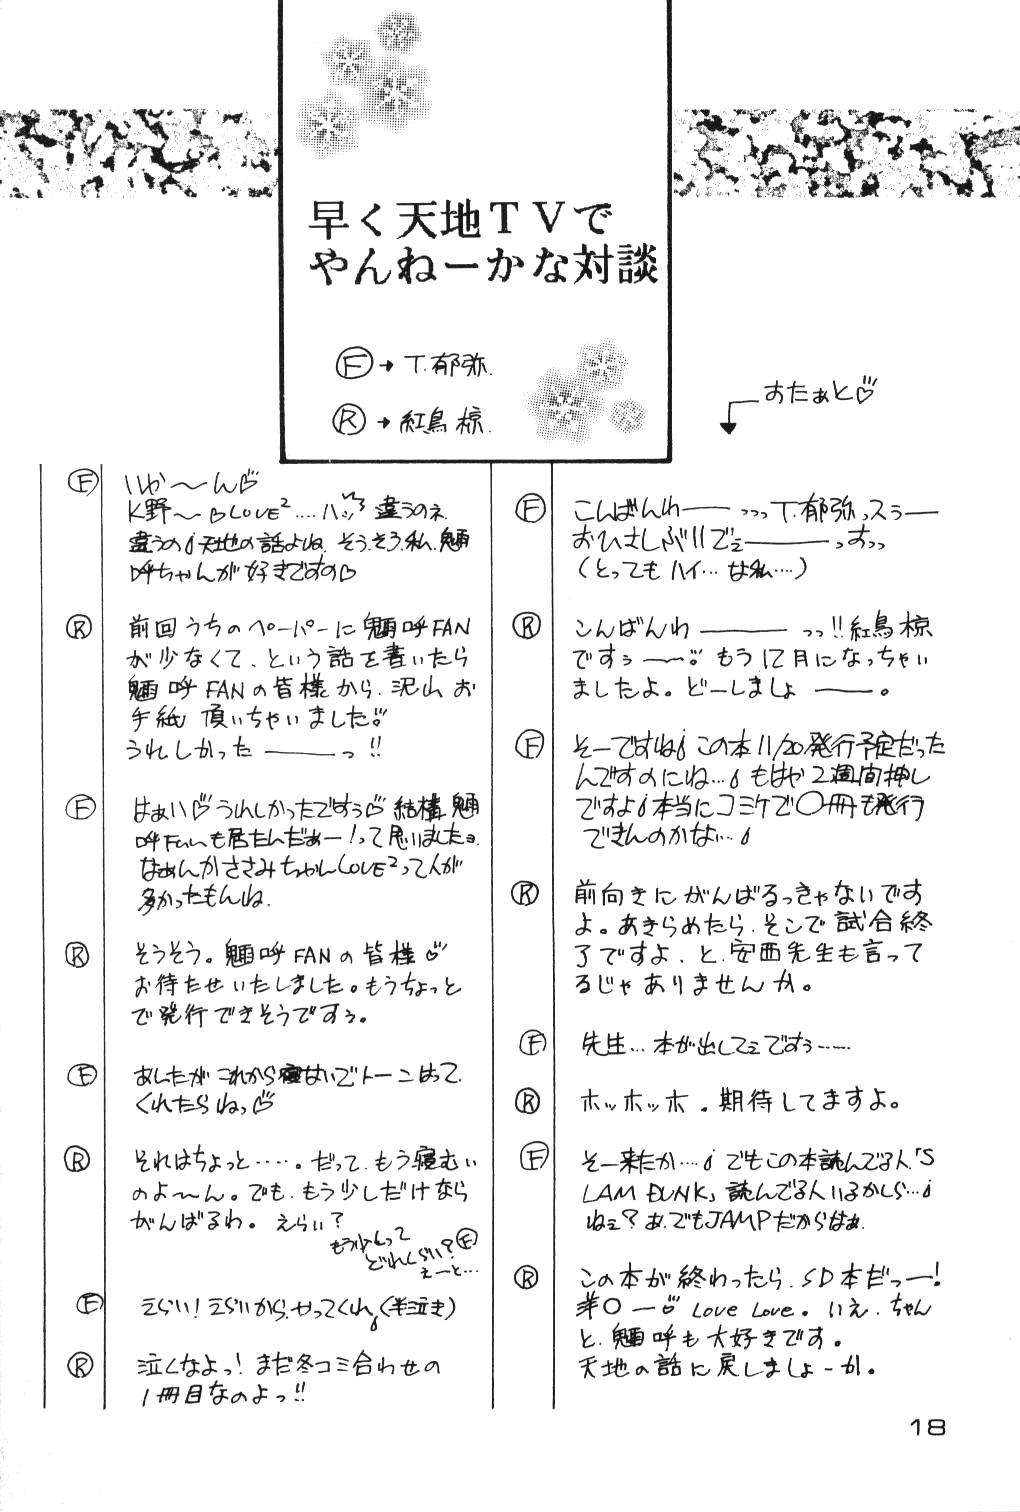 早く天地TVで
やんねーかな対談
Ⓕ→T.郁弥.
Ⓡ→紅鳥 椋.
すたぁと♡
Ⓕ こんばんわ——っっっT.郁弥っスぅ——
おひさしぶりでぇ———っすっっ
(とってもハイ…な私…‥)
Ⓡ こんばんわ———っっ!!紅鳥 椋
ですぅ〜〜。もう12月になっちゃい
ましたよ。どーしましょ——。
Ⓕ そーですね この本11/20発行予定だった
んですのにね… もはや2週間押し
ですよ 本当にコミケで〇冊も発行
できんのかなぃ…
Ⓡ 前向きにがんばるっきゃないです
よ。あきらめたら、そこで試合終
了ですよ、と、安西先生も言って
るじゃありませんか。
Ⓕ 先生… 本が出してぇですぅ……
Ⓡ ホッホッホ。期待してますよ。
Ⓕ そー来たか…. でもこの本読んでる人「S
LAM DUNK」読んでる人いるかしら…
ねぇ? あ、でもJAMPだからはぁ.
Ⓡ この本が終わったら、SD本だっー!
羊〇ー♡ LOVE LOVE。いえ、ちゃん
と、魎呼も大好きです。
天地の話に戻しましょーか。
Ⓕ いか〜ん♡
K野〜♡LOVE²‥‥ハッ 違うのネ
違うの 天地の話よね そう、そう、私、魎
呼ちゃんが好きですの♡
Ⓡ 前回うちのペーパーに魎呼FAN
が少なくて、という話を書いたら
魎呼FANの皆様から、沢山お
手紙 頂いちゃいました♡
うれしかった———っ!!
Ⓕ はぁい♡うれしかったですぅ♡結構 魎
呼Fanも居たんだぁー!って思いましたョ.
なぁんかささみちゃんLOVE²って人が
多かったもんね.
Ⓡ そうそう。魎呼FANの皆様♡
お待たせいたしました。もうちょっと
で発行できそうですぅ。
Ⓕ あしたが これから寝ないでトーンはって
くれたらねっ♡
Ⓡ それはちょっと‥‥。だって、もう寝むい
のよ〜ん。でも、もう少しだけなら
がんばるわ。えらい?
もう少しって
どれくらい?Ⓕ
えーと…
Ⓕ えらい! えらいから、やってくれ(半泣き)
Ⓡ 泣くなよっ! まだ冬コミ合わせの
1冊目なのよっ!!
18